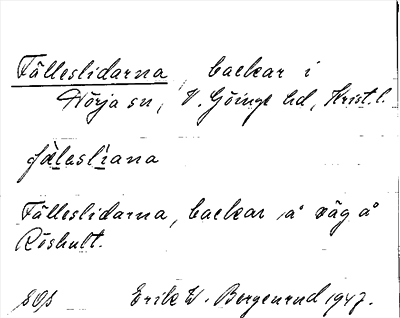 Fälleslidarna, backar i
Nörja sn, V. Göinge hd, Krist. l.
fälesliana
Fälleslidarna, backar å väg å
Röshult.
Erik W. Bergenrud 1947.